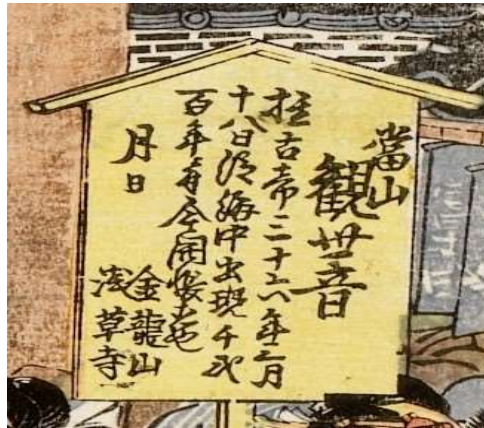 當山
観世音
推古帝三十六年三月
十八日海中出現千弐
百年今開帳者也
月日
金龍山
浅草寺